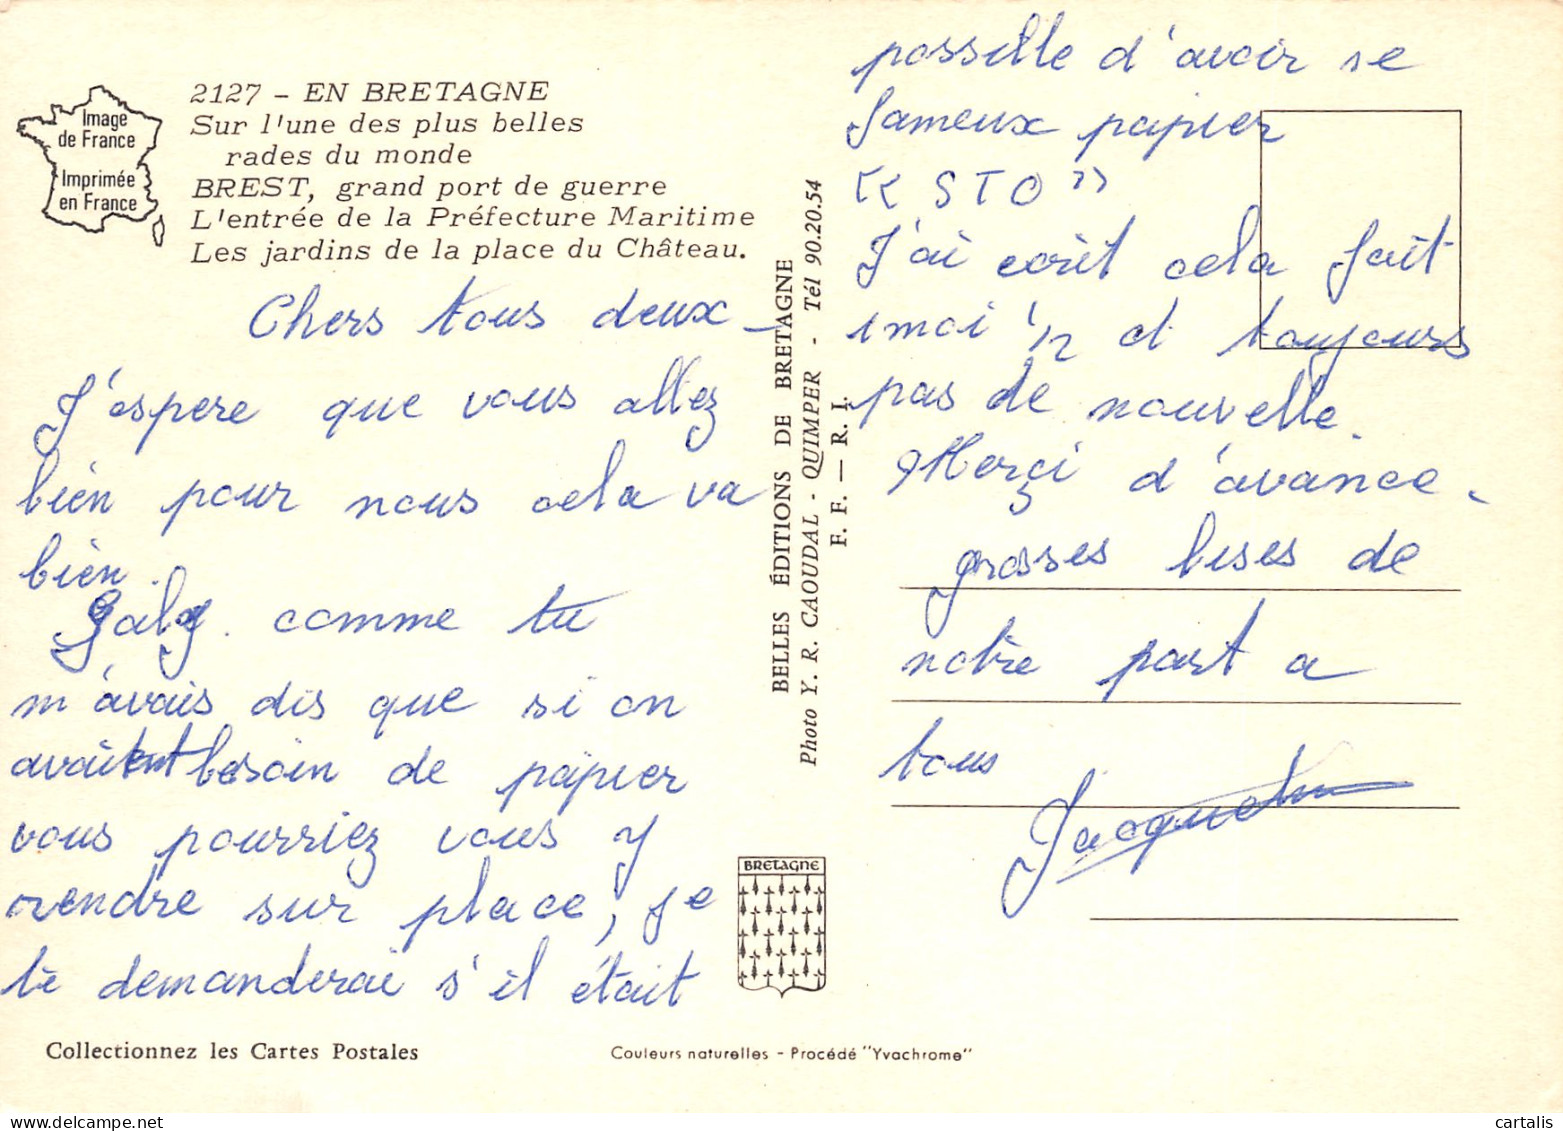 Image
de France
Imprimée
en France
2127 - EN BRETAGNE
Sur l'une des plus belles
rades du monde
BREST, grand port de guerre
L'entrée de la Préfecture Maritime
Les jardins de la place du Château.
Chers tous deux -
J'espere que vous allez
bien pour nous cela va
bien.
comme tu
m'avais dis que si on
besoin de papier
vous pourriez vous y
rendre sur place, je
te demanderai s'il était
Collectionnez les Cartes Postales
BELLES ÉDITIONS DE BRETAGNE
Photo Y. R. CAOUDAL - QUIMPER - Tél 90.20.54
F. F. — R. I.
BRETAGNE
Couleurs naturelles - Procédé "Yvachrome"
possille d'avoir se
fameux papier
<< STO >>
J'ai ecrit cela fait
1 moi 1/2 et toujours
pas de nouvelle.
Merçi d'avance.
grosses bises de
notre part a
tous
cartalis